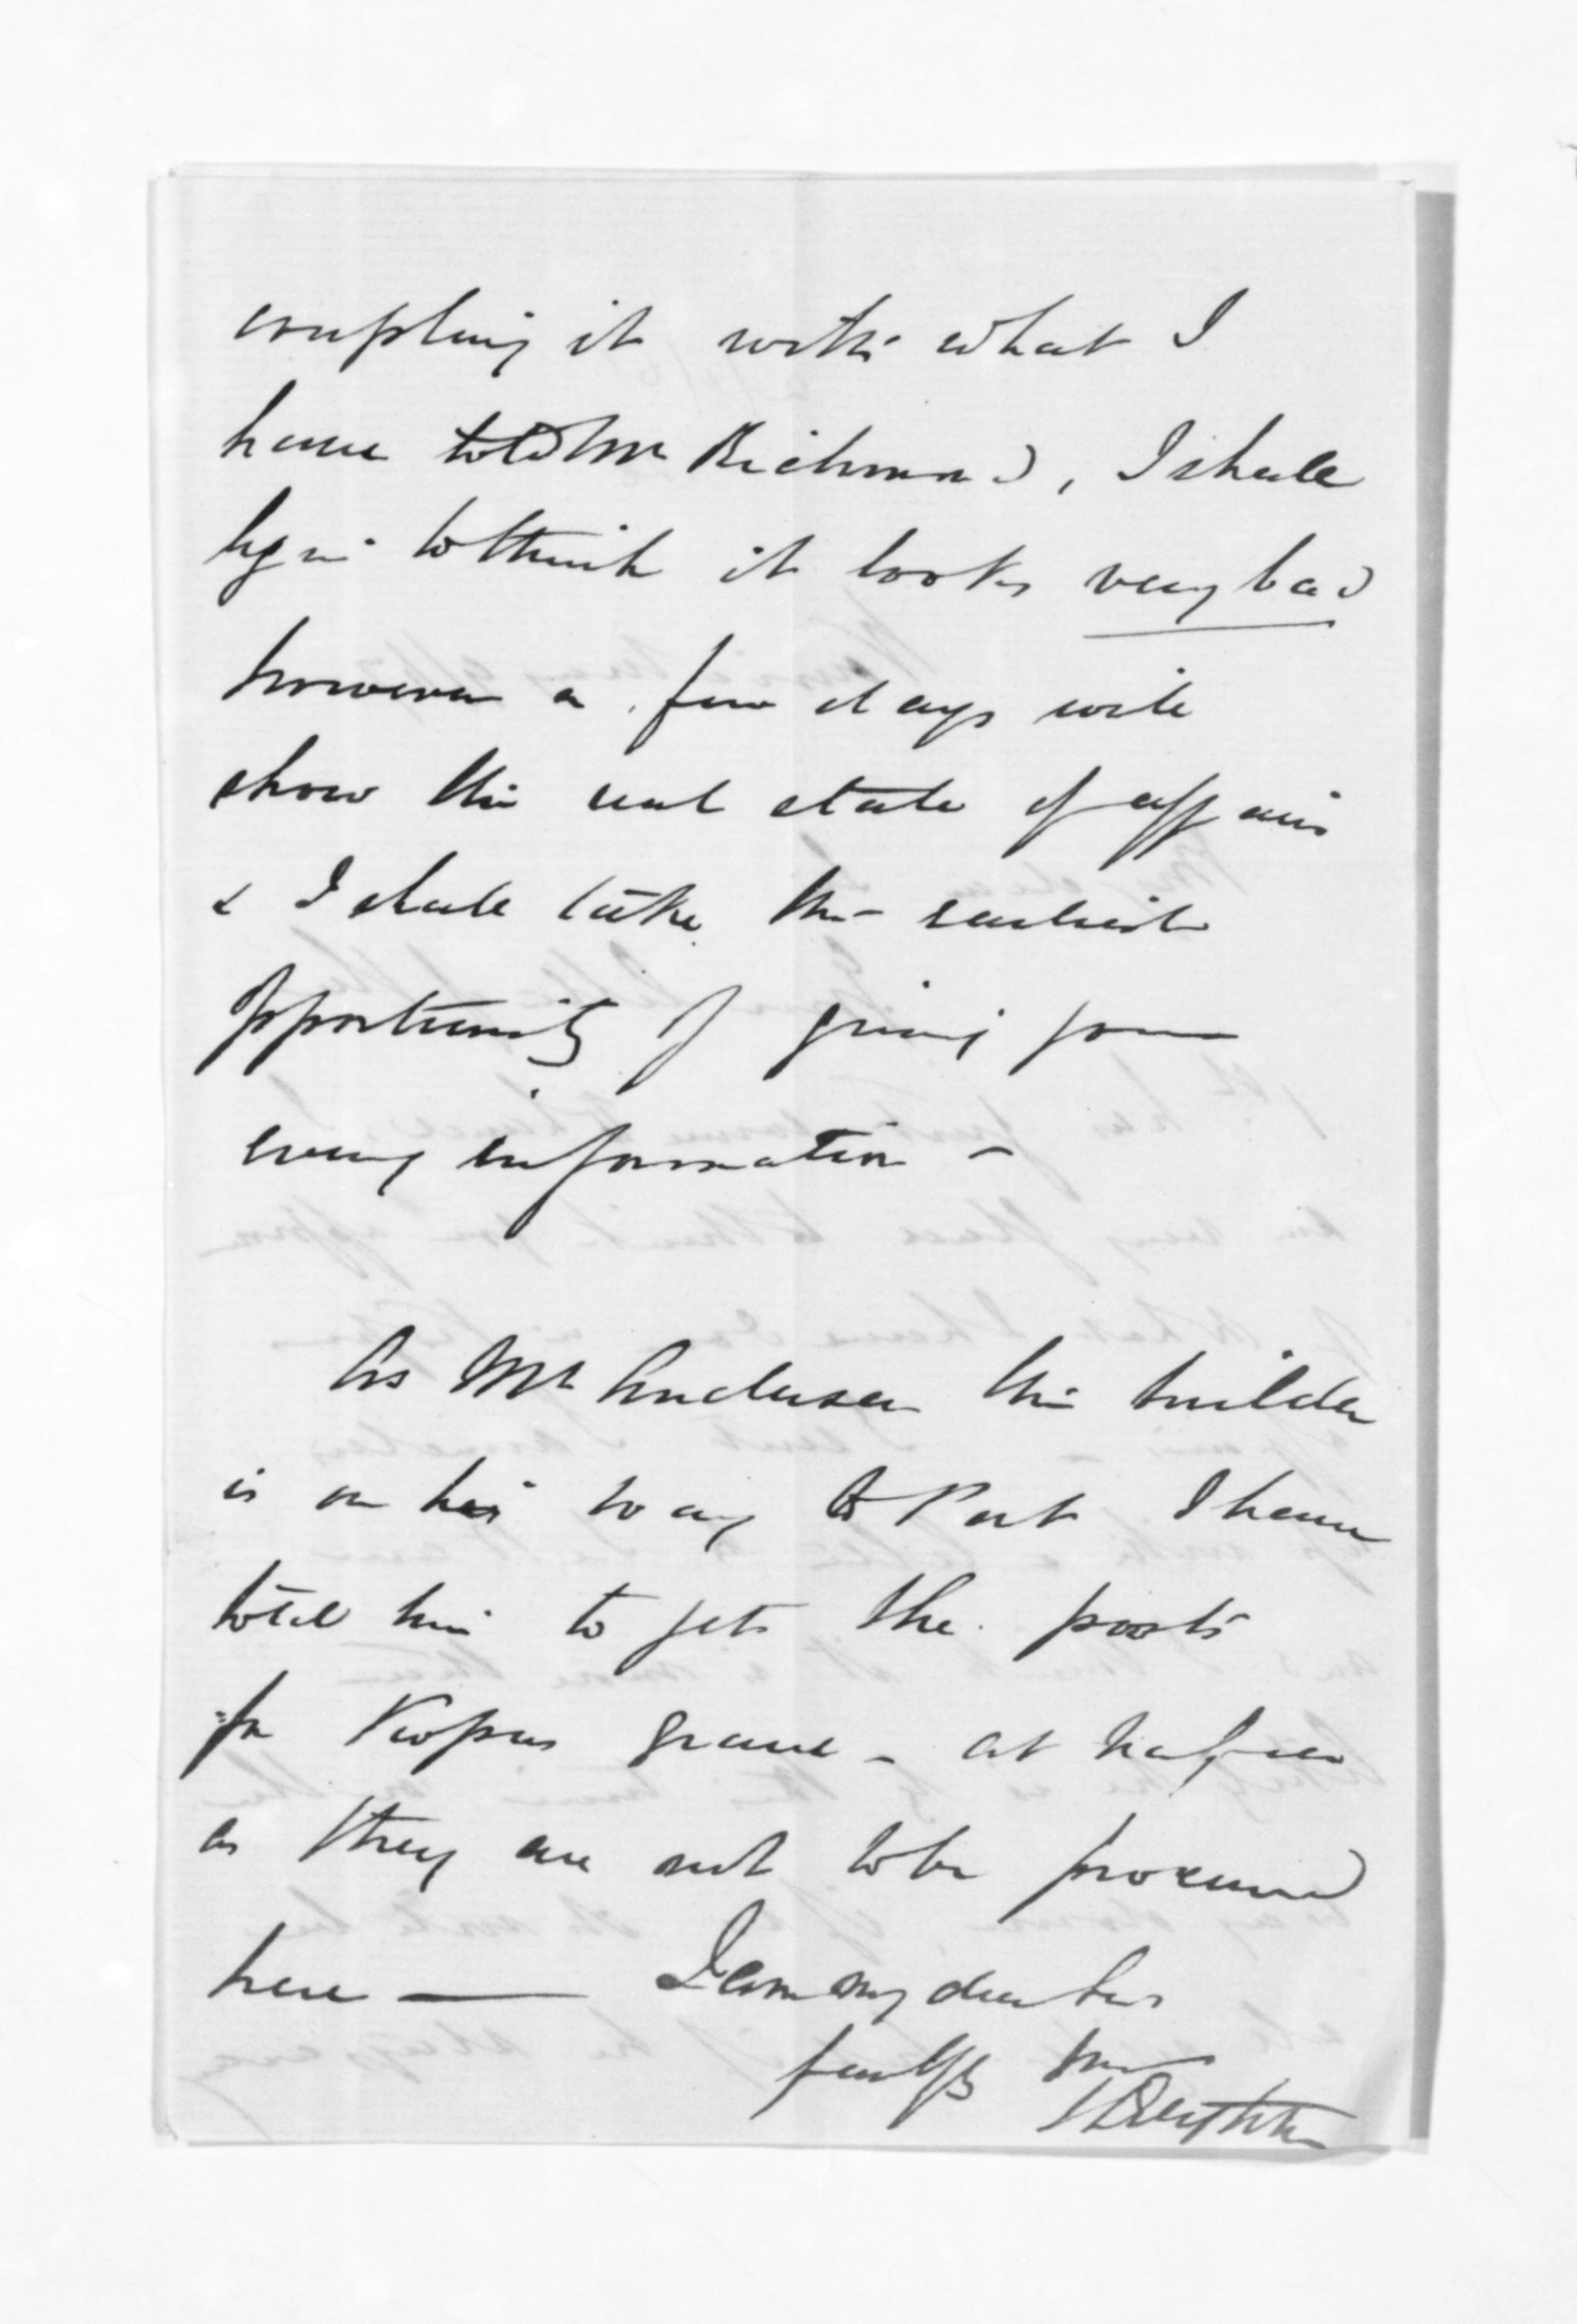 coupling it with what I
have told Mr Richmond, I shall
begin to think it looks very bad
however a few days will
show the real state of affairs
& I shall take the earliest
opportunity of giving you
every information -
As Mr Anderson the builder
is on his way to Port I have
told him to get the posts
for Kopus grave - at
as they are not to be procured
here — I am my dear Sir
faithfy yrs